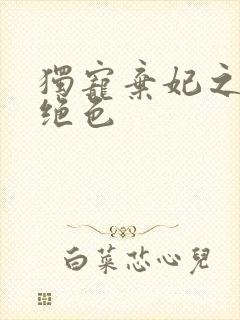 獨寵棄妃之
绝色
白菜芯心兒